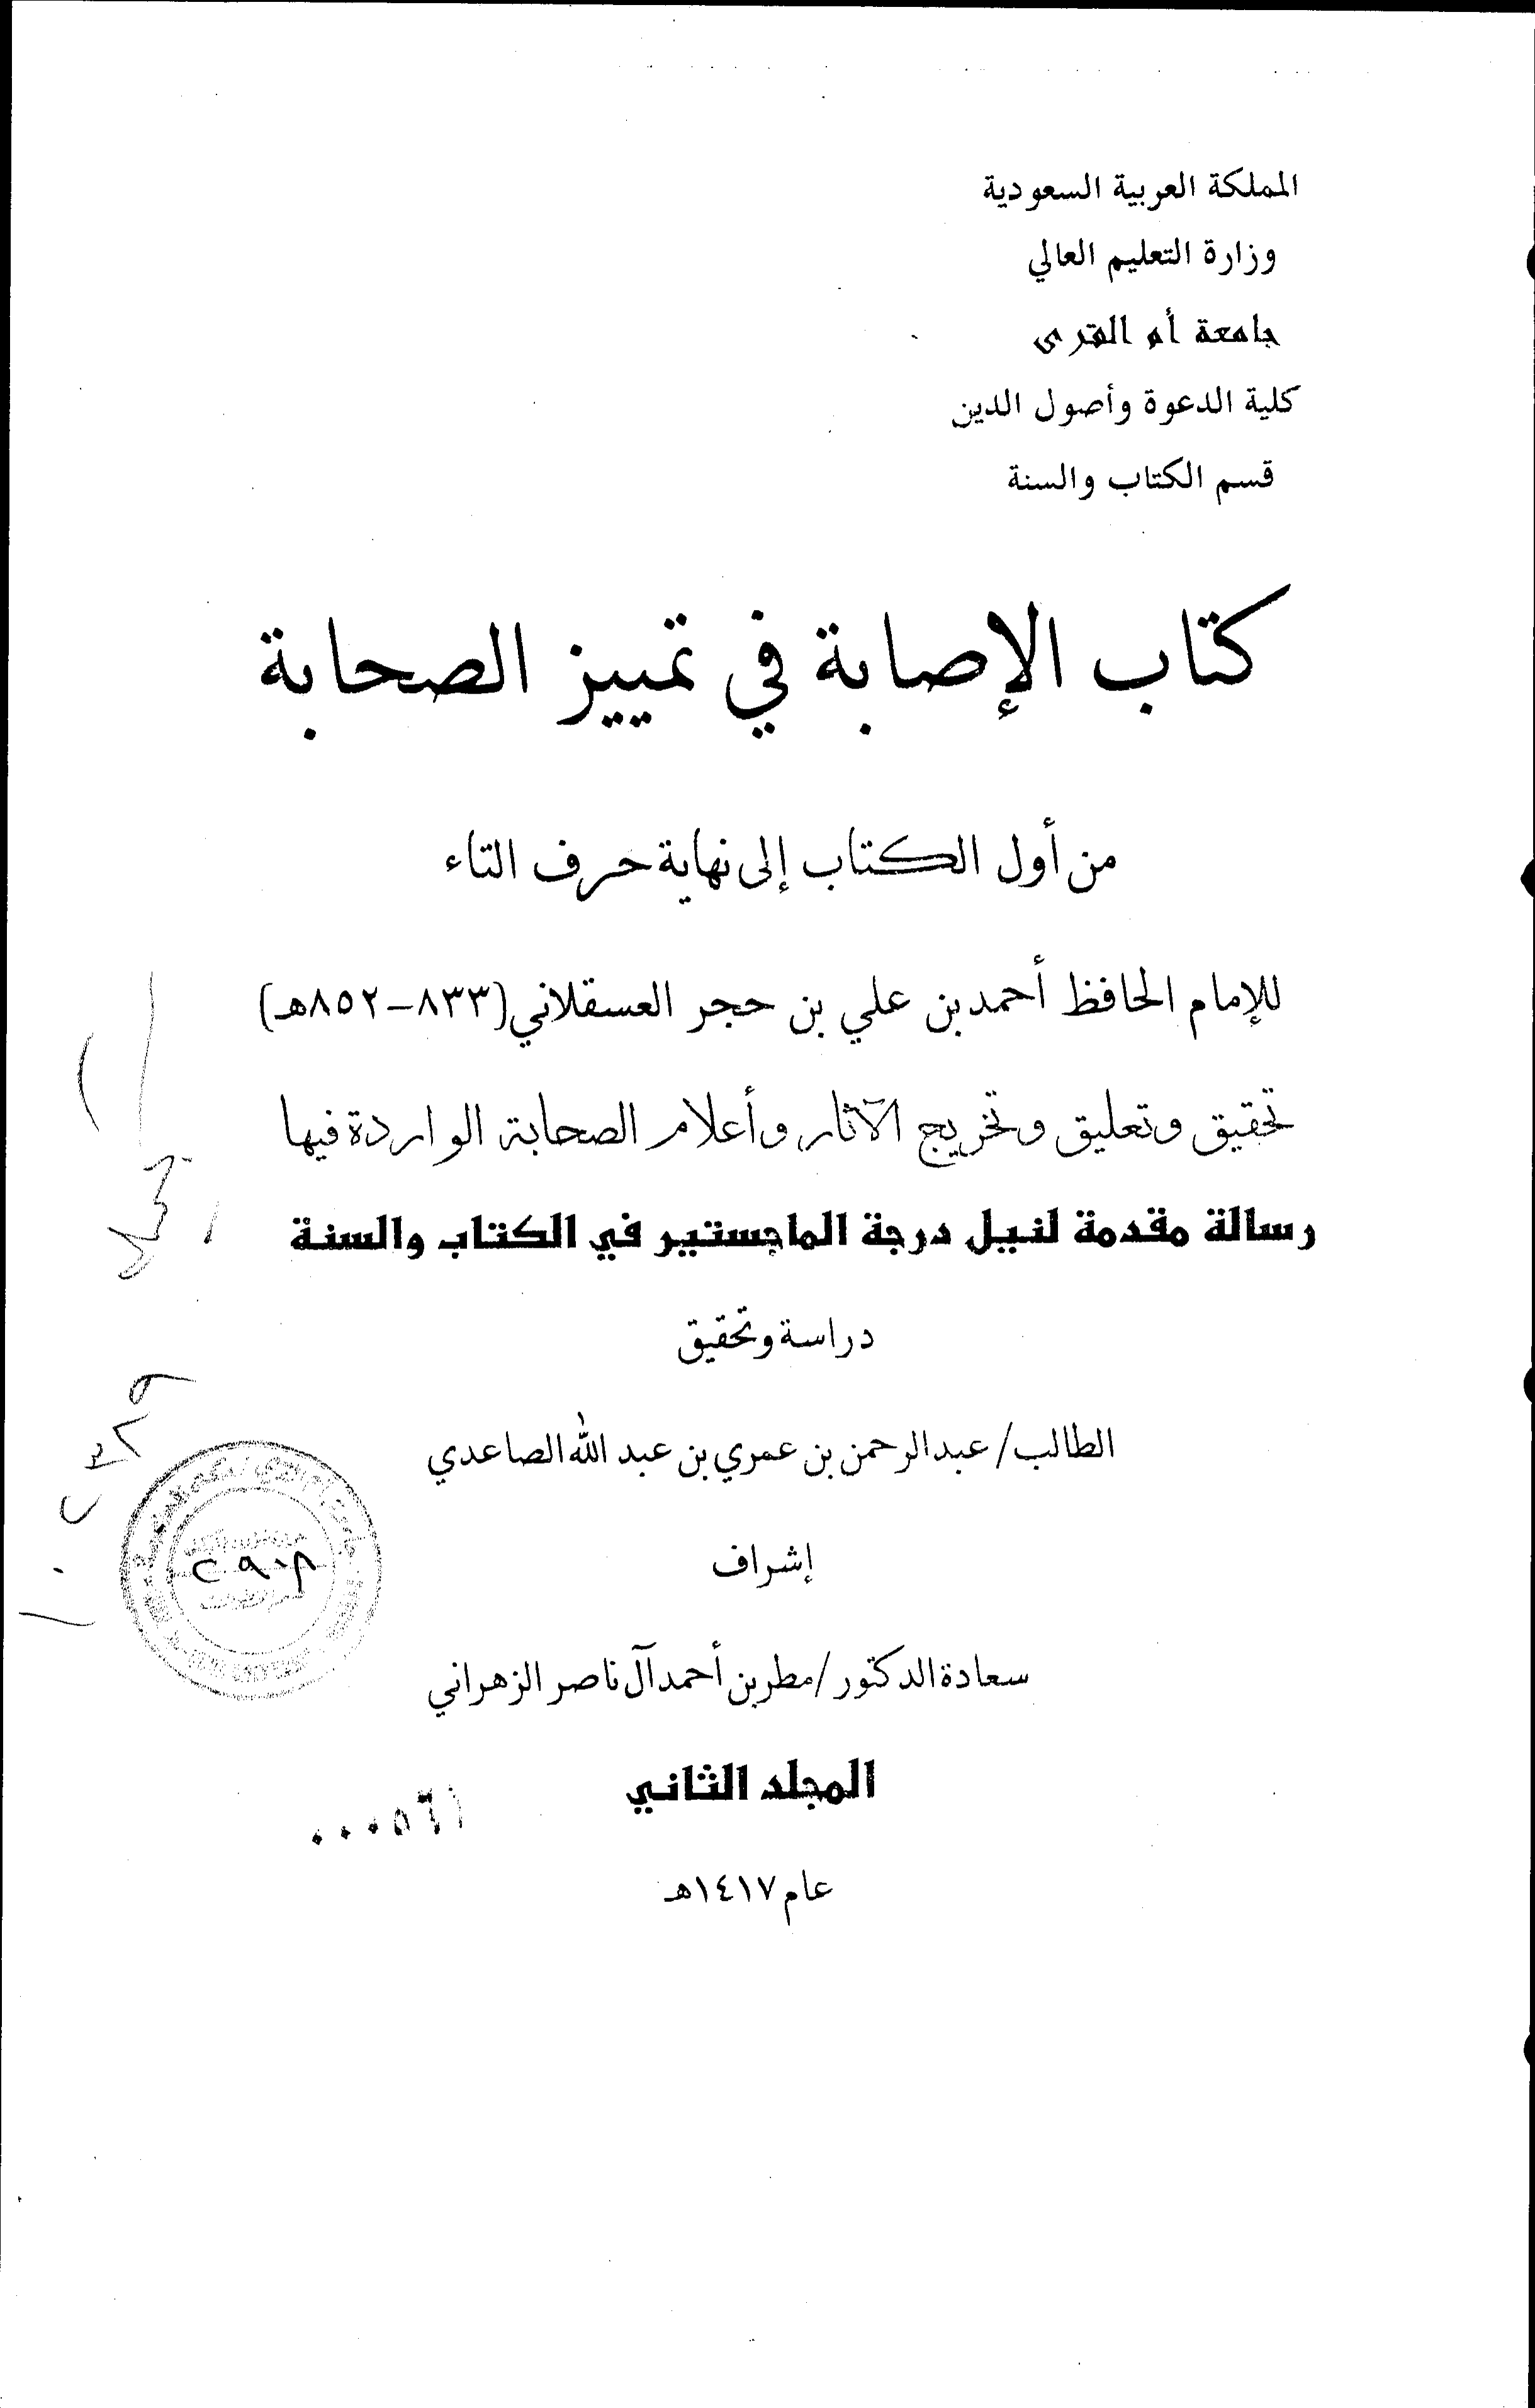 المملكة العربية السعودية
وزارة التعليم العالي
جامعة أم القرى
كلية الدعوة وأصول الدين
قسم الكتاب والسنة
كتاب الإصابة في تمييز الصحابة
من أول الكتاب إلى نهاية حرف التاء
للإمام الحافظ أحمد بن علي بن حجر العسقلاني (٨٣٣-٨٥٢هـ)
تحقيق وتعليق وتخريج الآثار وأعلام الصحابة الواردة فيها
رسالة مقدمة لنيل درجة الماجستير في الكتاب والسنة
دراسة وتحقيق
الطالب/ عبد الرحمن بن عمري بن عبد الله الصاعدي
إشراف
سعادة الدكتور/ مطر بن أحمد آل ناصر الزهراني
المجلد الثاني
٠٠٠٥٦١
عام ١٤١٧هـ